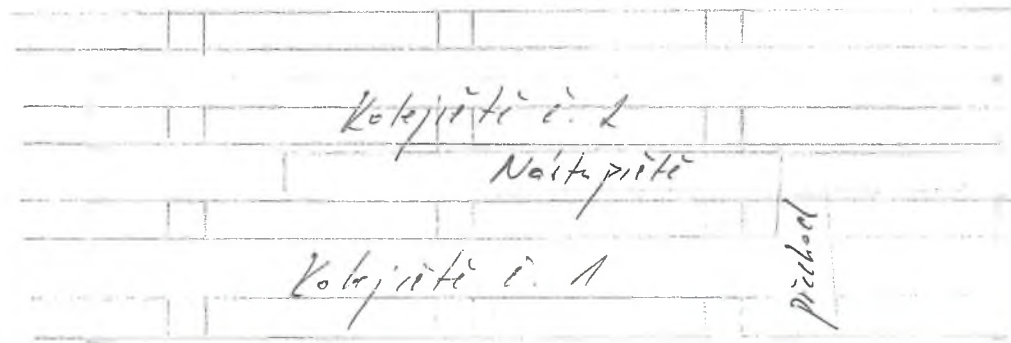 Kolejiště č. 2
Nástupiště
Kolejiště č. 1
přechod